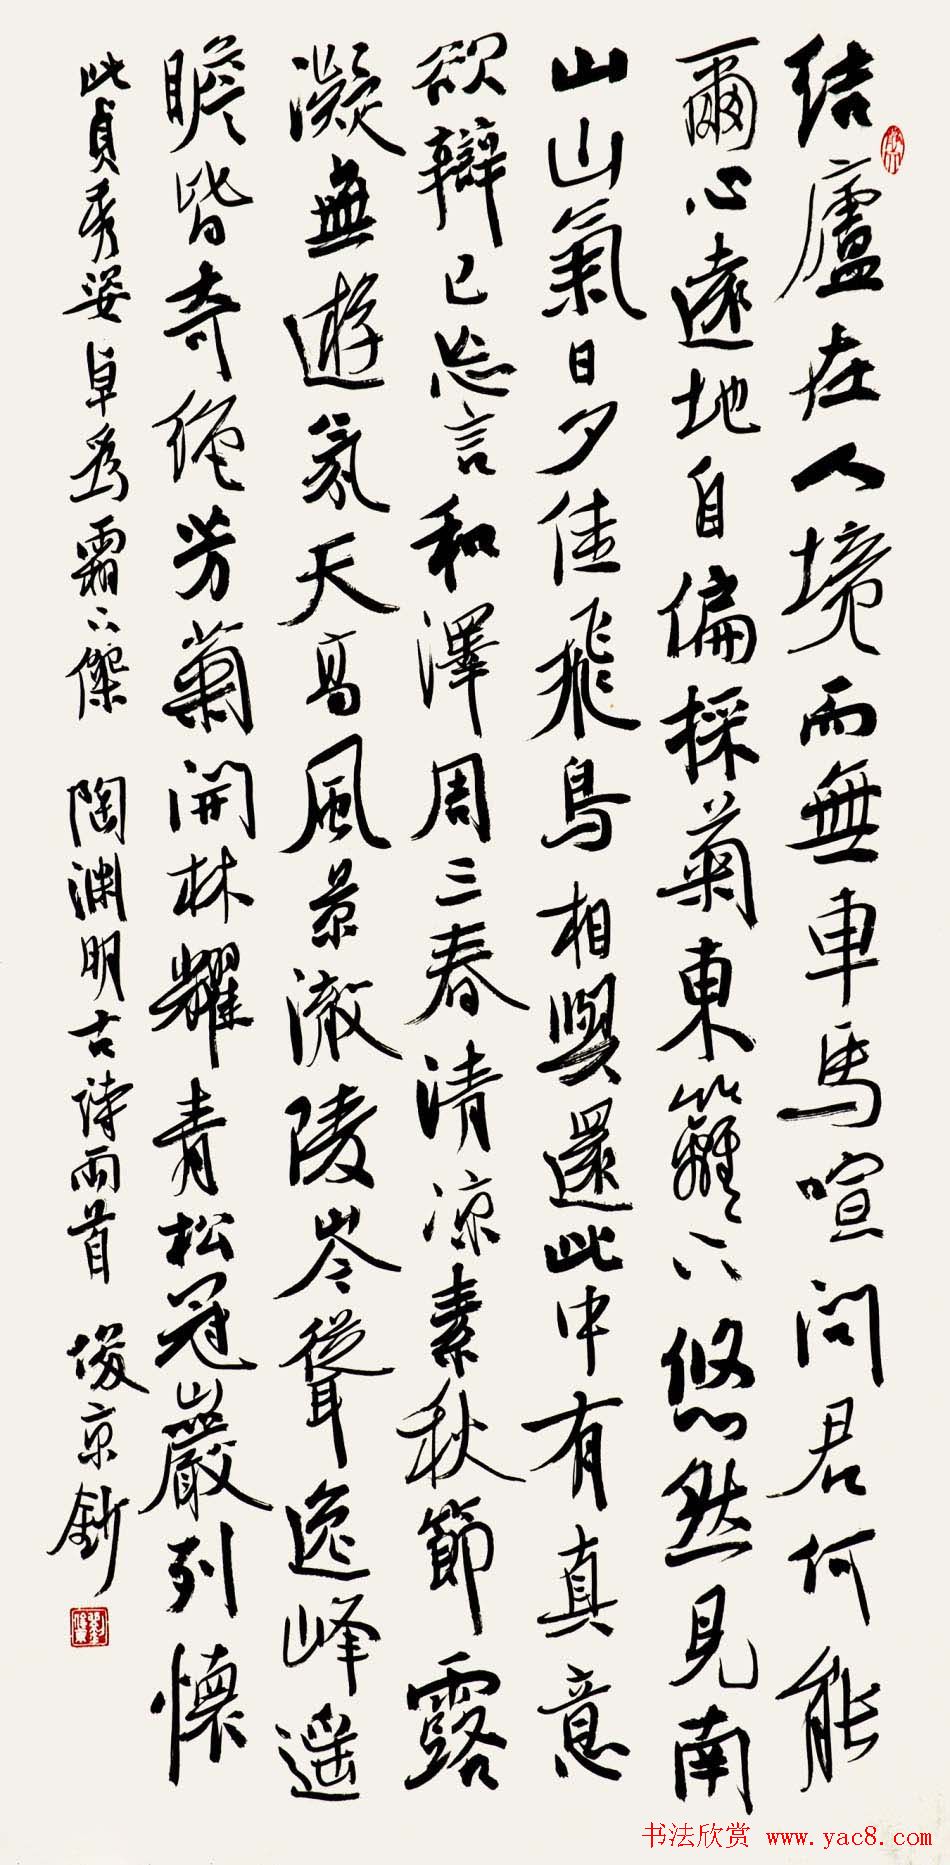 结廬在人境而無車馬喧問君何能
爾心遠地自偏採菊東籬下悠然見南
山山氣日夕佳飛鳥相與還此中有真意
欲辯已忘言和澤周三春清凉素秋節露
凝無遊氛天高風景澈陵岑聳逸峰遥
瞻皆奇絶芳菊開林耀青松冠巖列懷
此貞秀姿卓為霜下傑 陶淵明古詩兩首 俊京鈔
书法欣赏 www.yac8.com